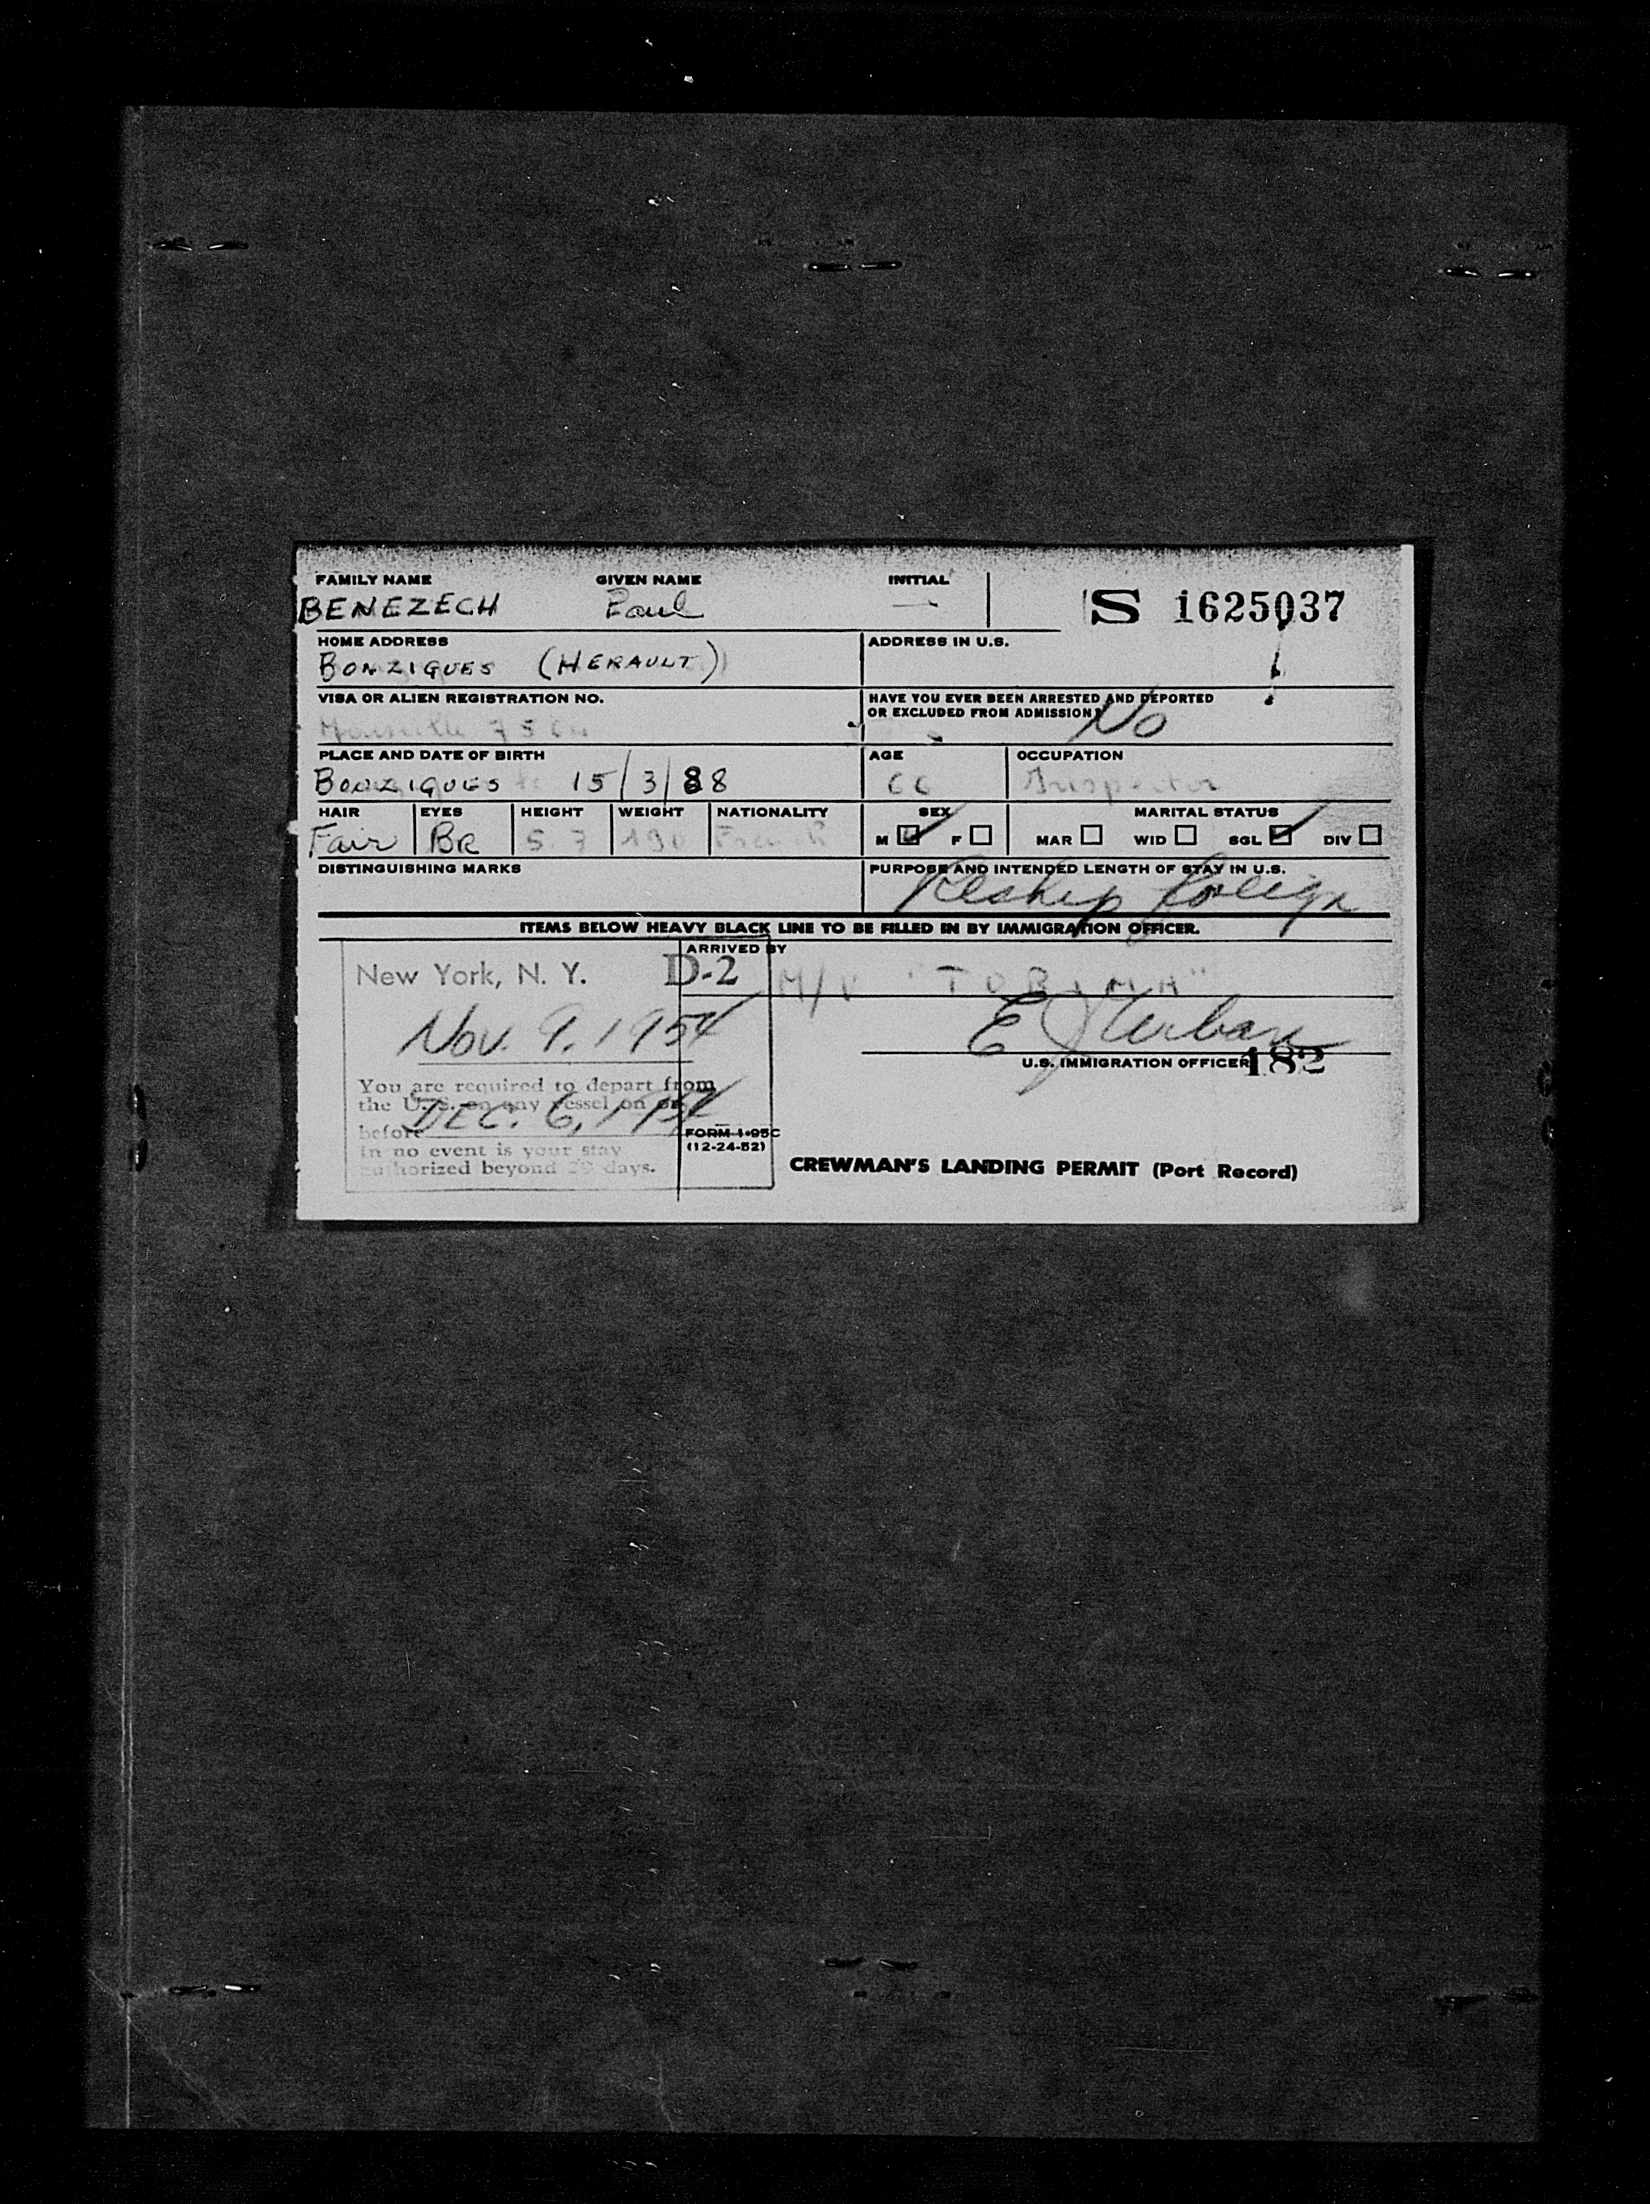 FAMILY NAME GIVEN NAME INITIAL
BENEZECH Paul — S 1625037
HOME ADDRESS ADDRESS IN U.S.
BONZIGUES (HERAULT)
VISA OR ALIEN REGISTRATION NO. HAVE YOU EVER BEEN ARRESTED AND DEPORTED
OR EXCLUDED FROM ADMISSION? No
PLACE AND DATE OF BIRTH AGE OCCUPATION
BONZIGUES 15/3/88 66 Inspector
HAIR EYES HEIGHT WEIGHT NATIONALITY SEX MARITAL STATUS
Fair BR 5.7 190 French M F MAR WID SGL DIV
DISTINGUISHING MARKS PURPOSE AND INTENDED LENGTH OF STAY IN U.S.
Reship foreign
ITEMS BELOW HEAVY BLACK LINE TO BE FILLED IN BY IMMIGRATION OFFICER.
ARRIVED BY
New York, N. Y. D-2 M/V
Nov. 9. 1954
U.S. IMMIGRATION OFFICER 182
You are required to depart from
the U. S. on any vessel on or
before DEC. 6, 1954
In no event is your stay
authorized beyond 29 days.
FORM I-95C
(12-24-52)
CREWMAN'S LANDING PERMIT (Port Record)